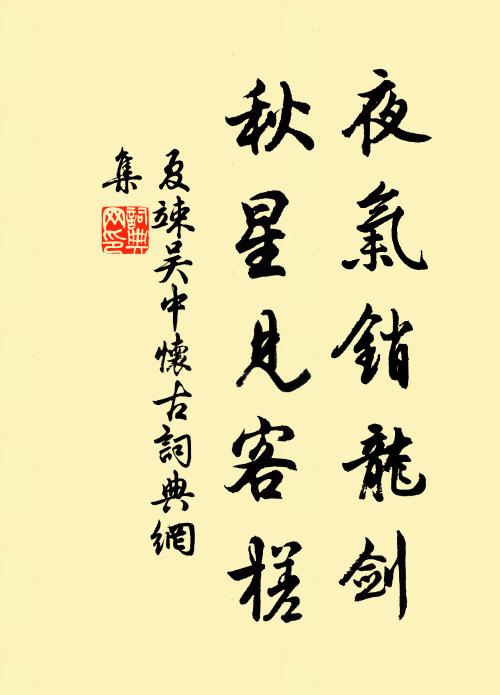 夜氣銷龍劍
秋星見客槎
夏竦吳中懷古詞典網
集
詞典
网印